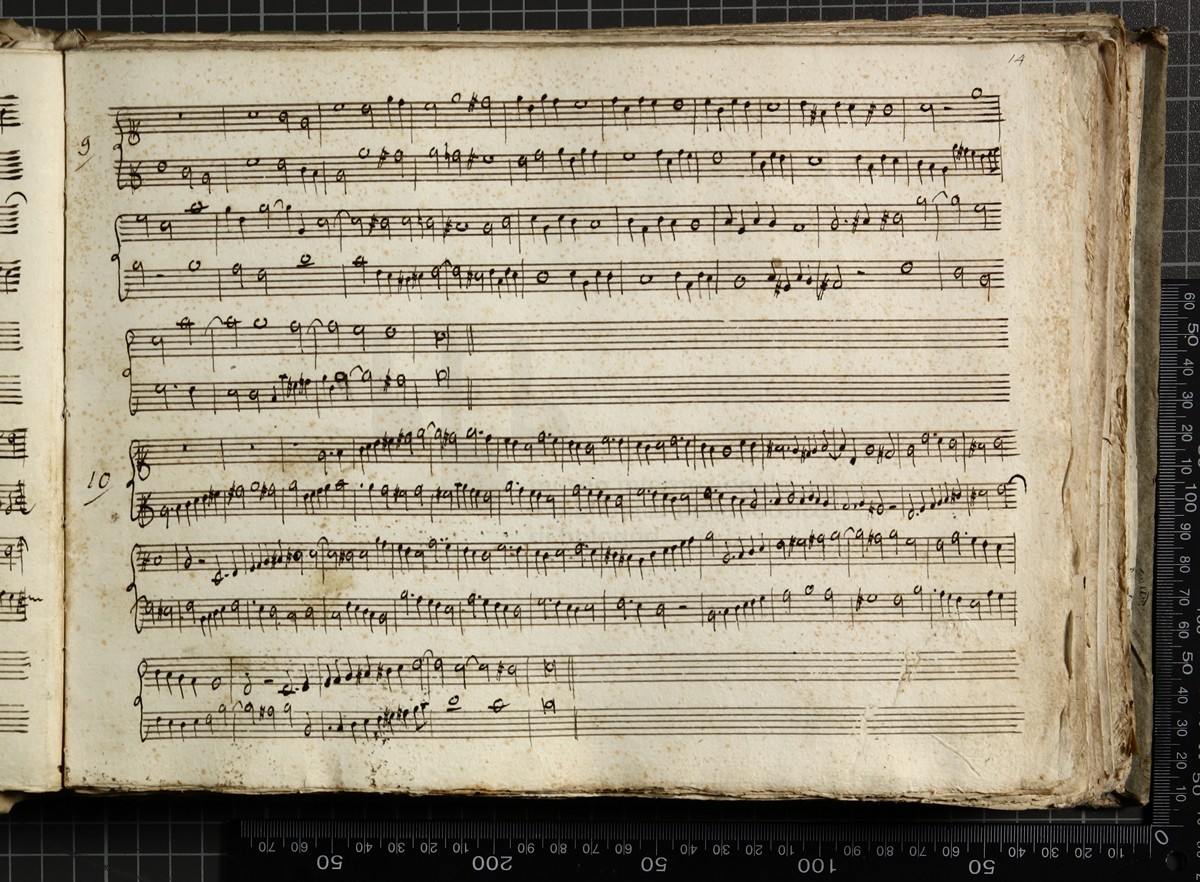 14
9
10
60 50 40 30 20 10 100 90 80 70 60 50 40 30 20 10 0
70 60 50 40 30 20 10 200 90 80 70 60 50 40 30 20 10 100 90 80 70 60 50 40 30 20 10